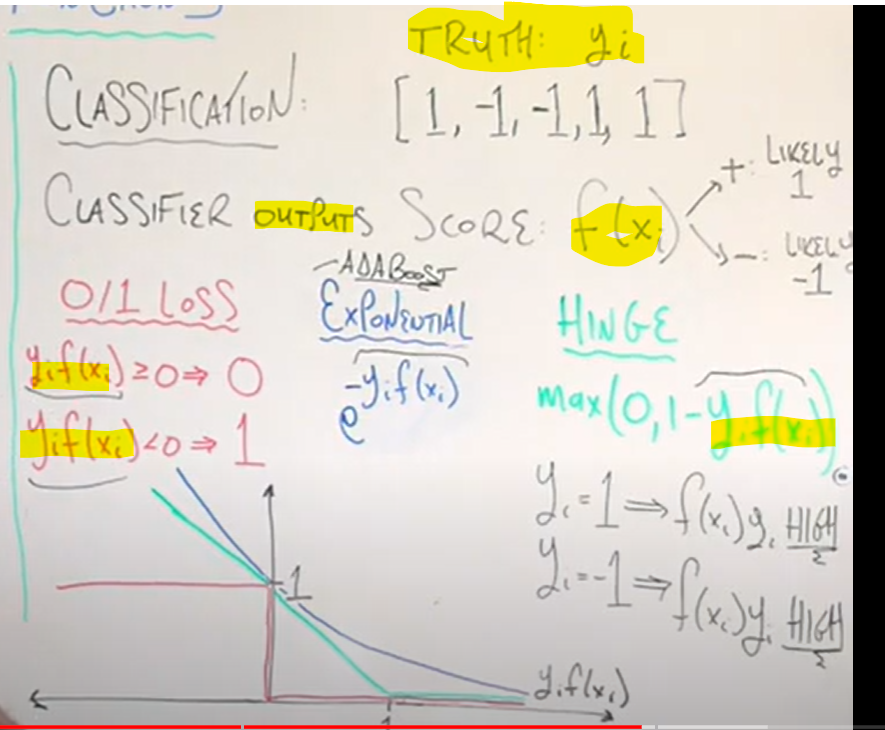 TRUTH: yi
CLASSIFICATION:
[1, -1, -1, 1, 1]
+: LIKELY
1
CLASSIFIER OUTPUTS SCORE: f(xi)
-: LIKELY
-1
0/1 LOSS
yif(xi) ≥ 0 ⇒ 0
yif(xi) < 0 ⇒ 1
-ADABOOST
EXPONENTIAL
e^-yif(xi)
HINGE
max(0, 1-yif(xi))
yi = 1 ⇒ f(xi)yi HIGH
yi = -1 ⇒ f(xi)yi HIGH
1
yif(xi)
1